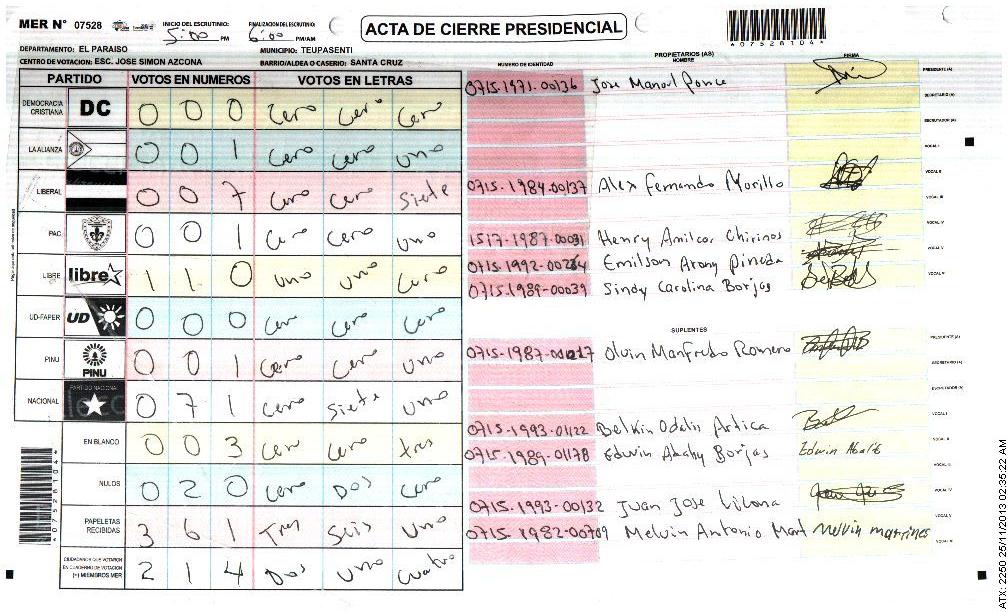 MER N° 07528
INICIO DEL ESCRUTINIO: 5:00 PM
FINALIZACION DEL ESCRUTINIO: 6:00 PM/AM
ACTA DE CIERRE PRESIDENCIAL
*07528104*
DEPARTAMENTO: EL PARAISO
MUNICIPIO: TEUPASENTI
CENTRO DE VOTACION: ESC. JOSE SIMON AZCONA
BARRIO/ALDEA O CASERIO: SANTA CRUZ
PARTIDO VOTOS EN NUMEROS VOTOS EN LETRAS
DEMOCRACIA CRISTIANA DC 0 0 0 Cero Cero Cero
LA ALIANZA 0 0 1 Cero Cero uno
LIBERAL 0 0 7 Cero Cero Siete
PAC 0 0 1 Cero Cero uno
LIBRE libre 1 1 0 uno uno Cero
UD-FAPER UD 0 0 0 Cero Cero Cero
PINU PINU 0 0 1 Cero Cero Uno
NACIONAL PARTIDO NACIONAL 0 7 1 Cero Siete uno
EN BLANCO 0 0 3 Cero Cero tres
NULOS 0 2 0 Cero Dos Cero
PAPELETAS RECIBIDAS 3 6 1 Tres Seis Uno
CIUDADANOS QUE VOTARON EN CUADERNO DE VOTACION (+) MIEMBROS MER 2 1 4 Dos Uno Cuatro
NUMERO DE IDENTIDAD PROPIETARIOS (AS) NOMBRE FIRMA
0715-1971-00136 Jose Manuel Ponce PRESIDENTE (A)
SECRETARIO (A)
ESCRUTADOR (A)
VOCAL I
0715-1984-00137 Alex Fernando Murillo VOCAL II
VOCAL III
1517-1987-00031 Henry Amilcar Chirinos VOCAL IV
0715-1992-00264 Emilson Arony Pineda VOCAL V
0715-1989-00039 Sindy Carolina Borjas VOCAL VI
SUPLENTES
0715-1987-00217 Olvin Manfredo Romero PRESIDENTE (A)
SECRETARIO (A)
ESCRUTADOR (A)
0715-1993-01122 Belkin Odalis Artica VOCAL I
0715-1989-01178 Edwin Abahy Borjas VOCAL II
VOCAL III
0715-1993-00132 Juan Jose VOCAL IV
VOCAL V
0715-1982-00709 Melvin Antonio Mart Melvin martines VOCAL VI
*07528104*
ATX: 2250 25/11/2013 02:35:22 AM